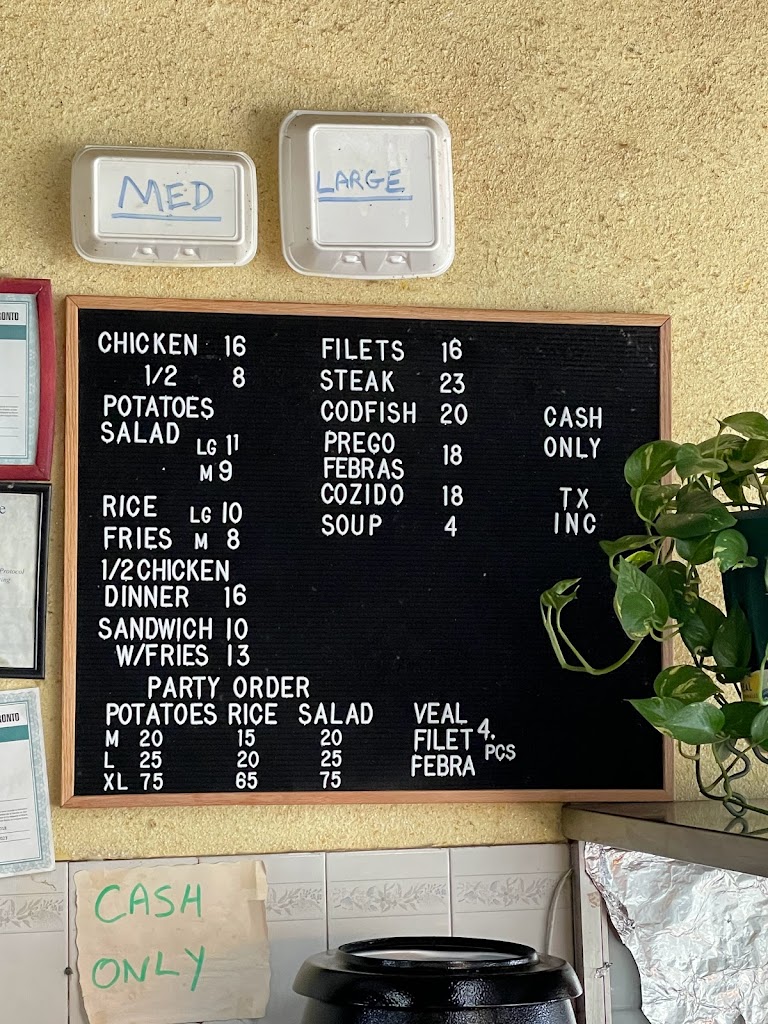 MED
LARGE
CHICKEN 16
1/2 8
POTATOES
SALAD LG 11
M 9
RICE LG 10
FRIES M 8
1/2 CHICKEN
DINNER 16
SANDWICH 10
W/FRIES 13
FILETS 16
STEAK 23
CODFISH 20
PREGO
FEBRAS 18
COZIDO 18
SOUP 4
CASH
ONLY
TX
INC
PARTY ORDER
POTATOES RICE SALAD
M 20 15 20
L 25 20 25
XL 75 65 75
VEAL
FILET 4.
FEBRA PCS
RONTO
Protocol
RONTO
CASH
ONLY